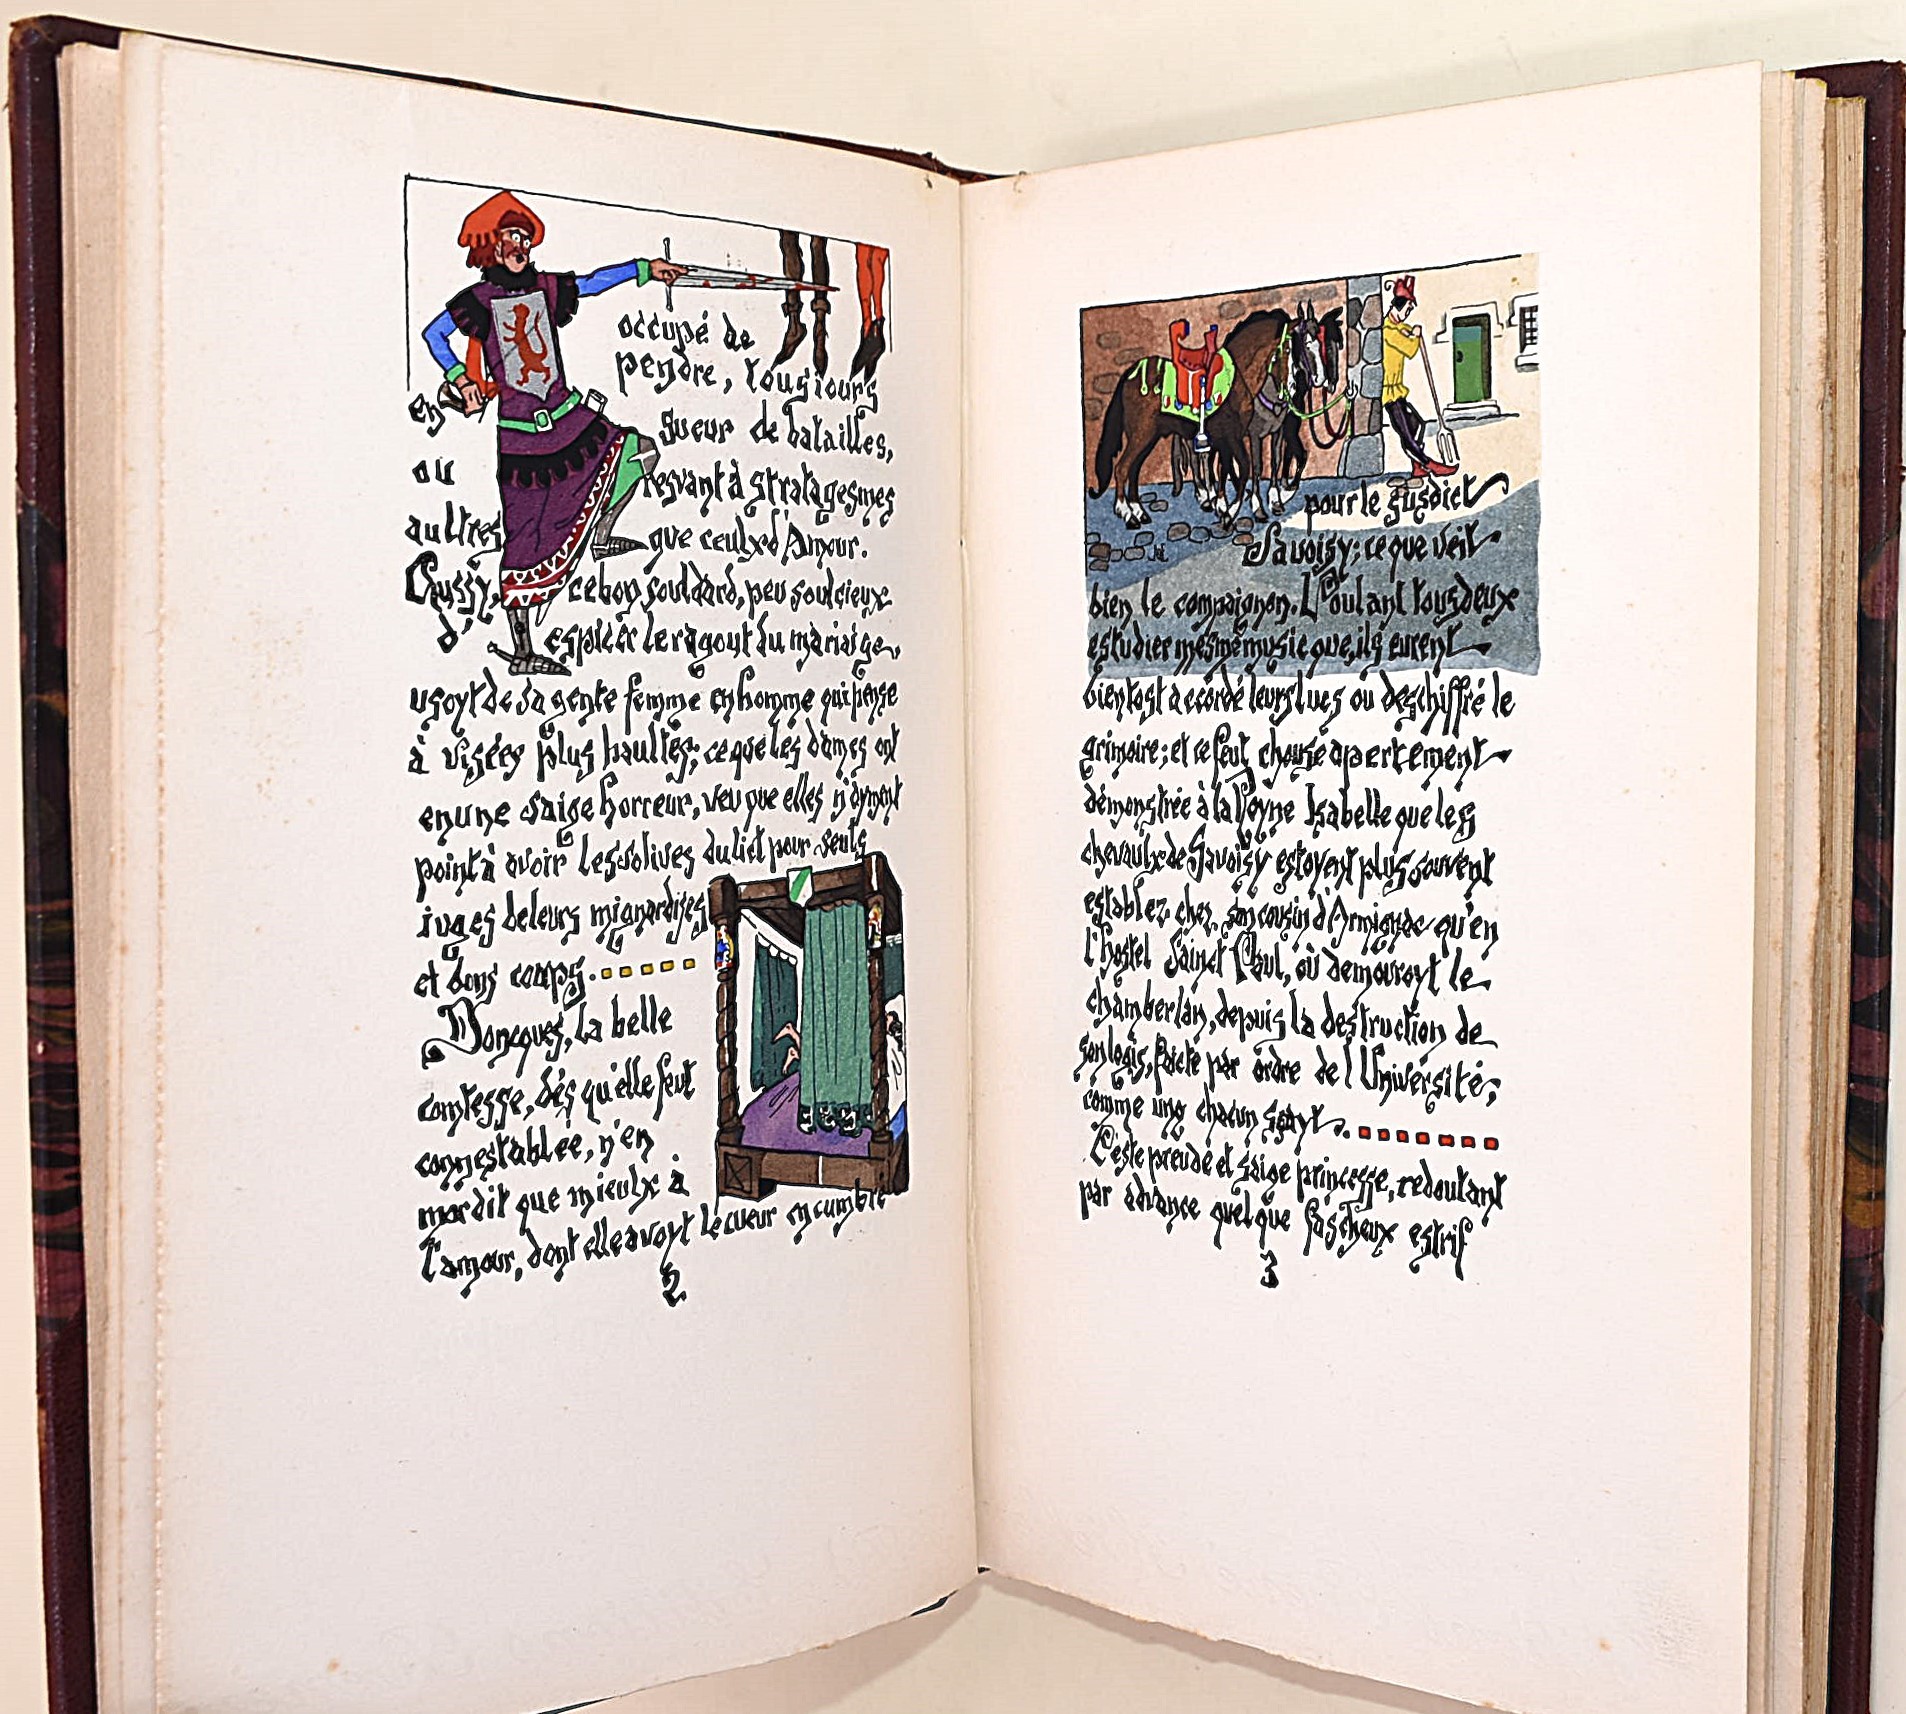 occupé de
pendre, tousiours
en sueur de batailles,
ou resvant à stratagesmes
aultres que ceulx d'Amour.
Oussy, ce bon souldard, peu soulcieux
d'espicer le ragout du mariaige,
usoyt de sa gente femme en homme qui pense
à visées plus haultes; ce que les dames ont
en une saige horreur, veu que elles n'ayment
point à avoir les solives du lict pour seuls
iuges de leurs mignardises
et bons coups.
Doncques, la belle
comtesse, dès qu'elle feut
connestablée, n'en
mordit que mieulx à
l'amour, dont elle avoyt le cueur encumbré
2
pour le susdict
Savoisy; ce que veit
bien le compaignon. Voulant tous deux
estudier mesme musicque, ils eurent
bientost accordé leurs lues ou deschiffré le
grimoire; et ce feut chouse apertement
démonstrée à la Royne Isabelle que les
chevaulx de Savoisy estoyent plus souvent
establez chez son cousin d'Armignac qu'en
l'hostel Sainct Paul, où demouroyt le
chamberlan, depuis la destruction de
son logis, faicte par ordre de l'Université,
comme ung chacun sçayt.
Ceste preude et saige princesse, redoutant
par advance quelque fascheux estrif
3